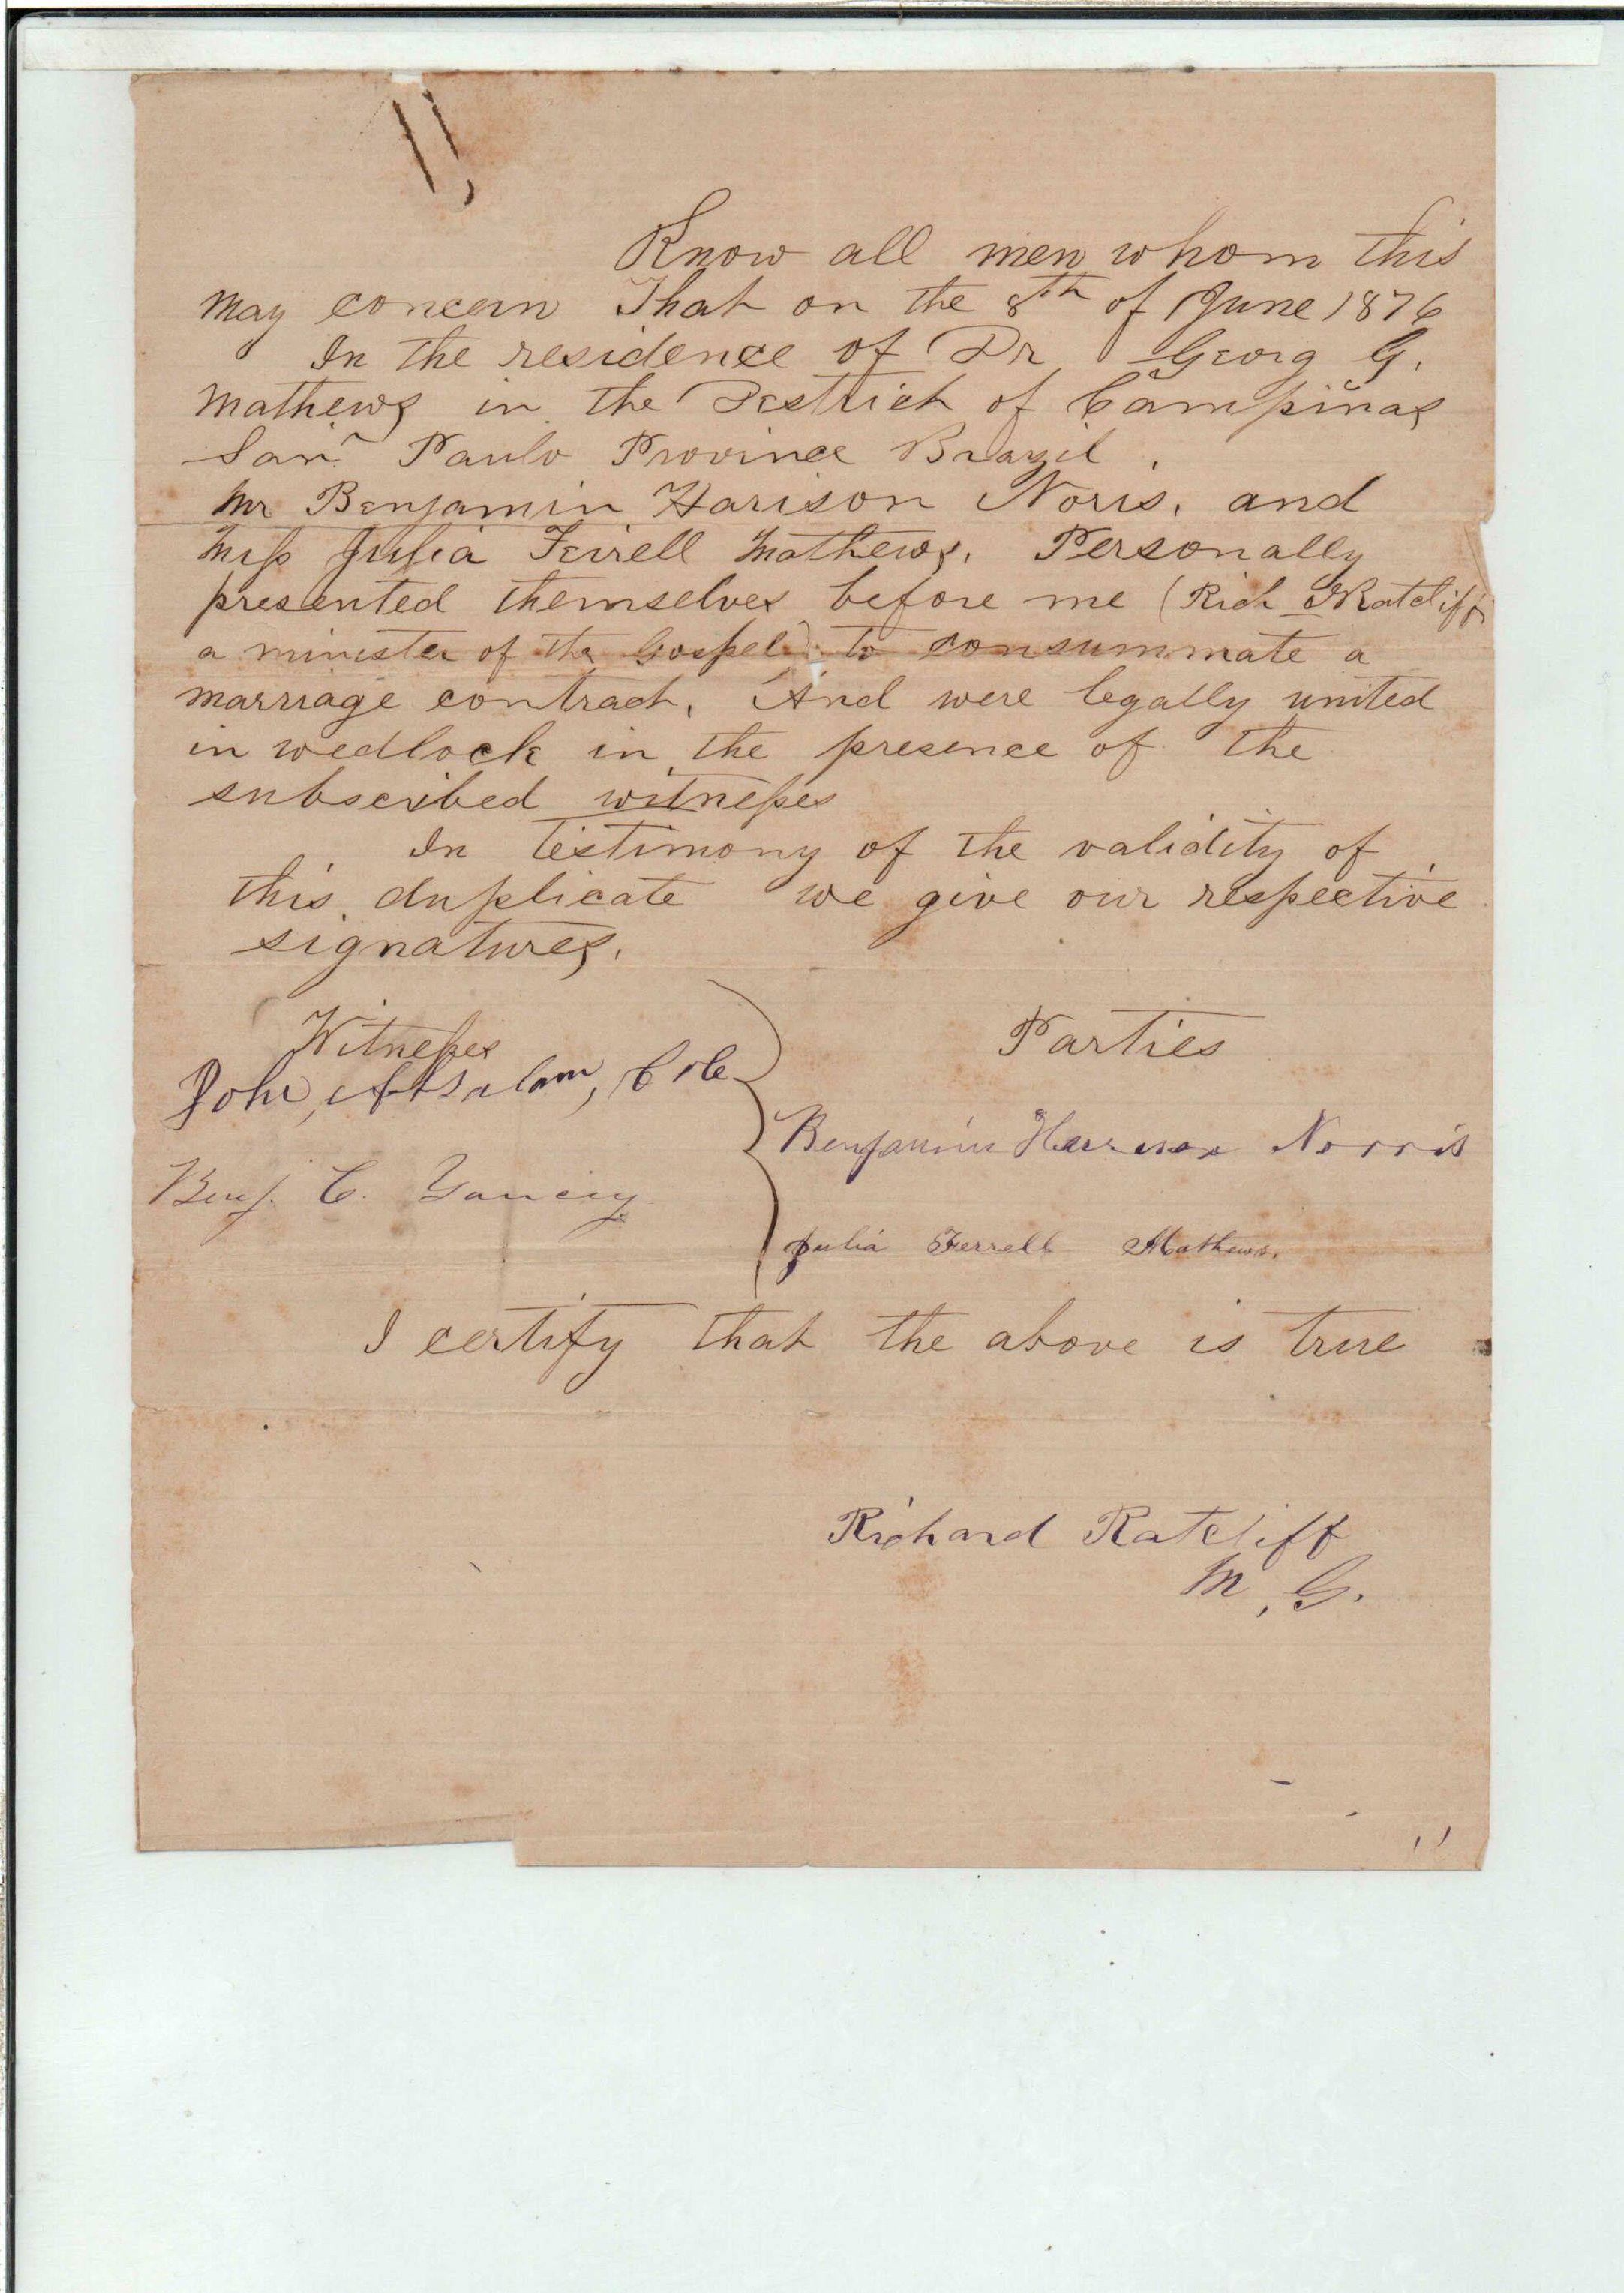 Know all men whom this
may concern That on the 8th of June 1876
In the residence of Dr Georg G.
Mathews in the Districh of Campinas
San Paulo Province Brazil.
Mr Benjamin Harison Noris, and
Miss Julia Ferrell Mathews. Personally
presented themselves before me (Rich Ratcliff
a minister of the Gospel) to consummate a
marriage contract. And were legally united
in wedlock in the presence of the
subscribed witnesses
In testimony of the validity of
this duplicate we give our respective
signatures.
Witnesses
John, Absalom, Cole
Benj. C. Yancey
Parties
Benjamin Harrison Norris
Julia Ferrell Mathews.
I certify that the above is true
Richard Ratcliff
M, G.